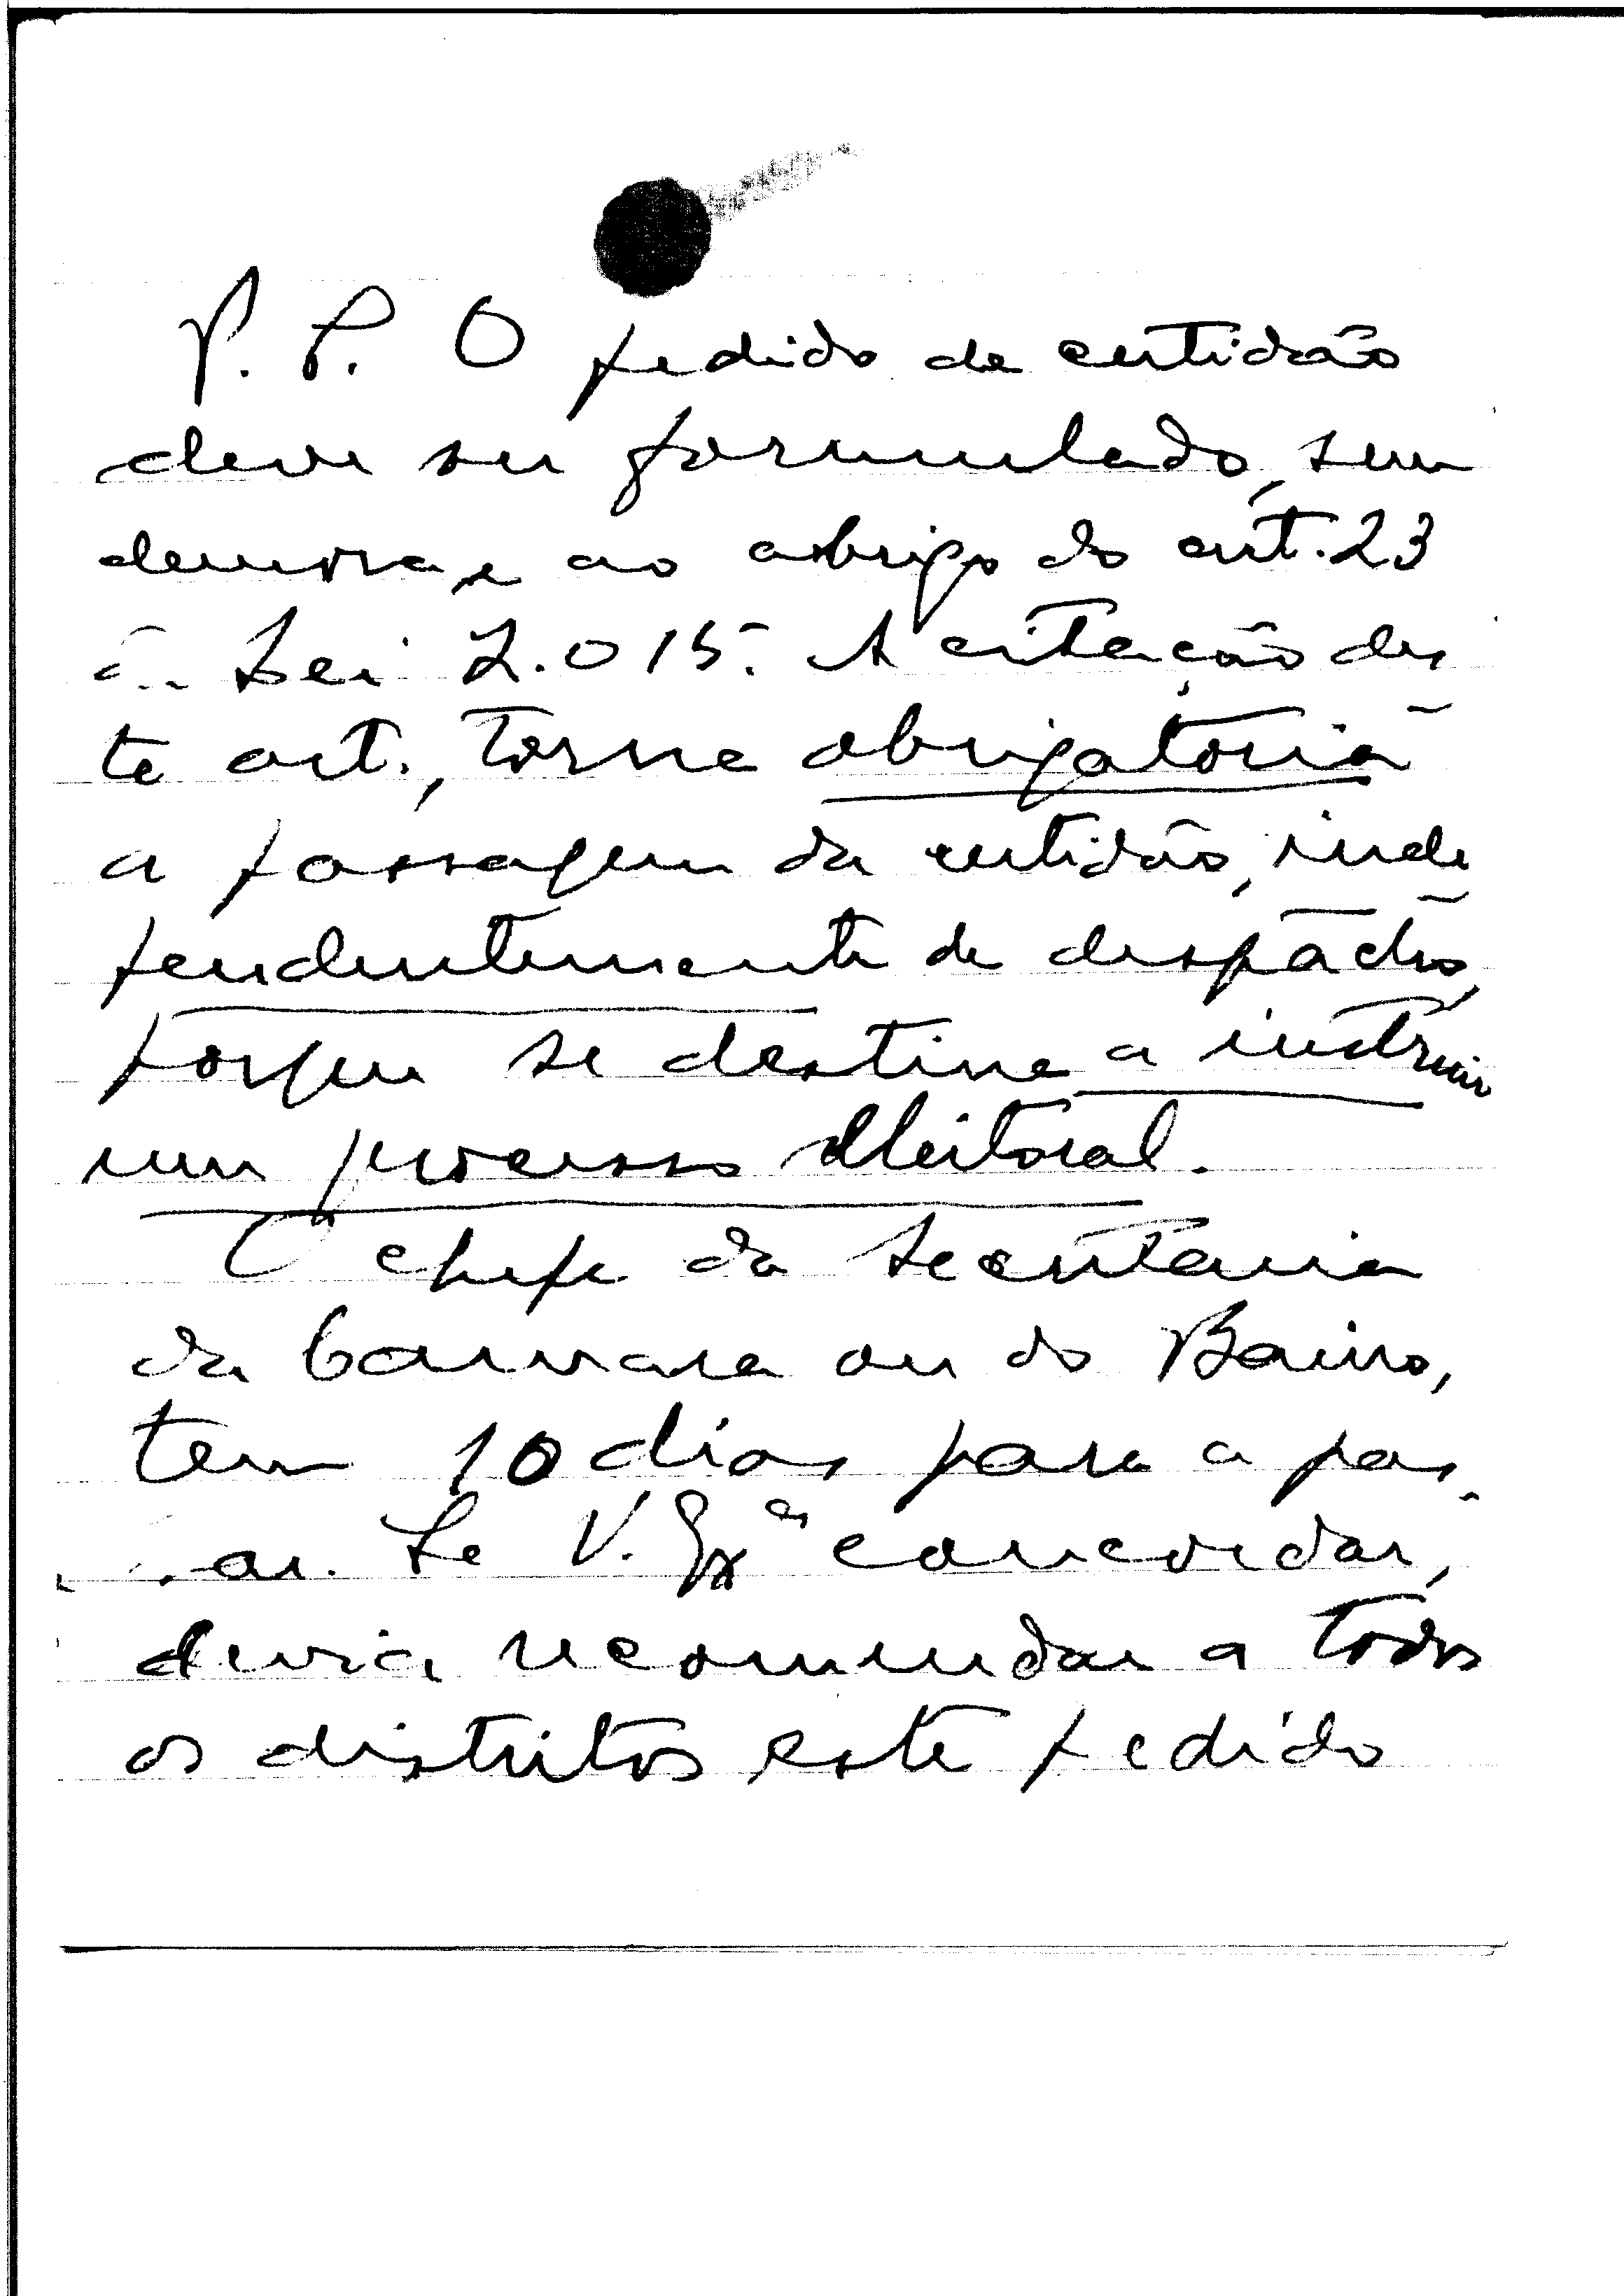 P. P. O pedido de certidão
deve ser formulado, sem
demora, e ao abrigo do art. 23
Lei 2.015. A citação des
te art., torna obrigatoria
a passagem da certidão, inde
pendentemente de despacho,
porque se destina a instruir
um processo eleitoral.
O chefe da Secretaria
da Camara ou do Bairro,
tem 10 dias para a pas
ar. Se V. Exas concordar,
devia recomendar a todos
os distritos este pedido